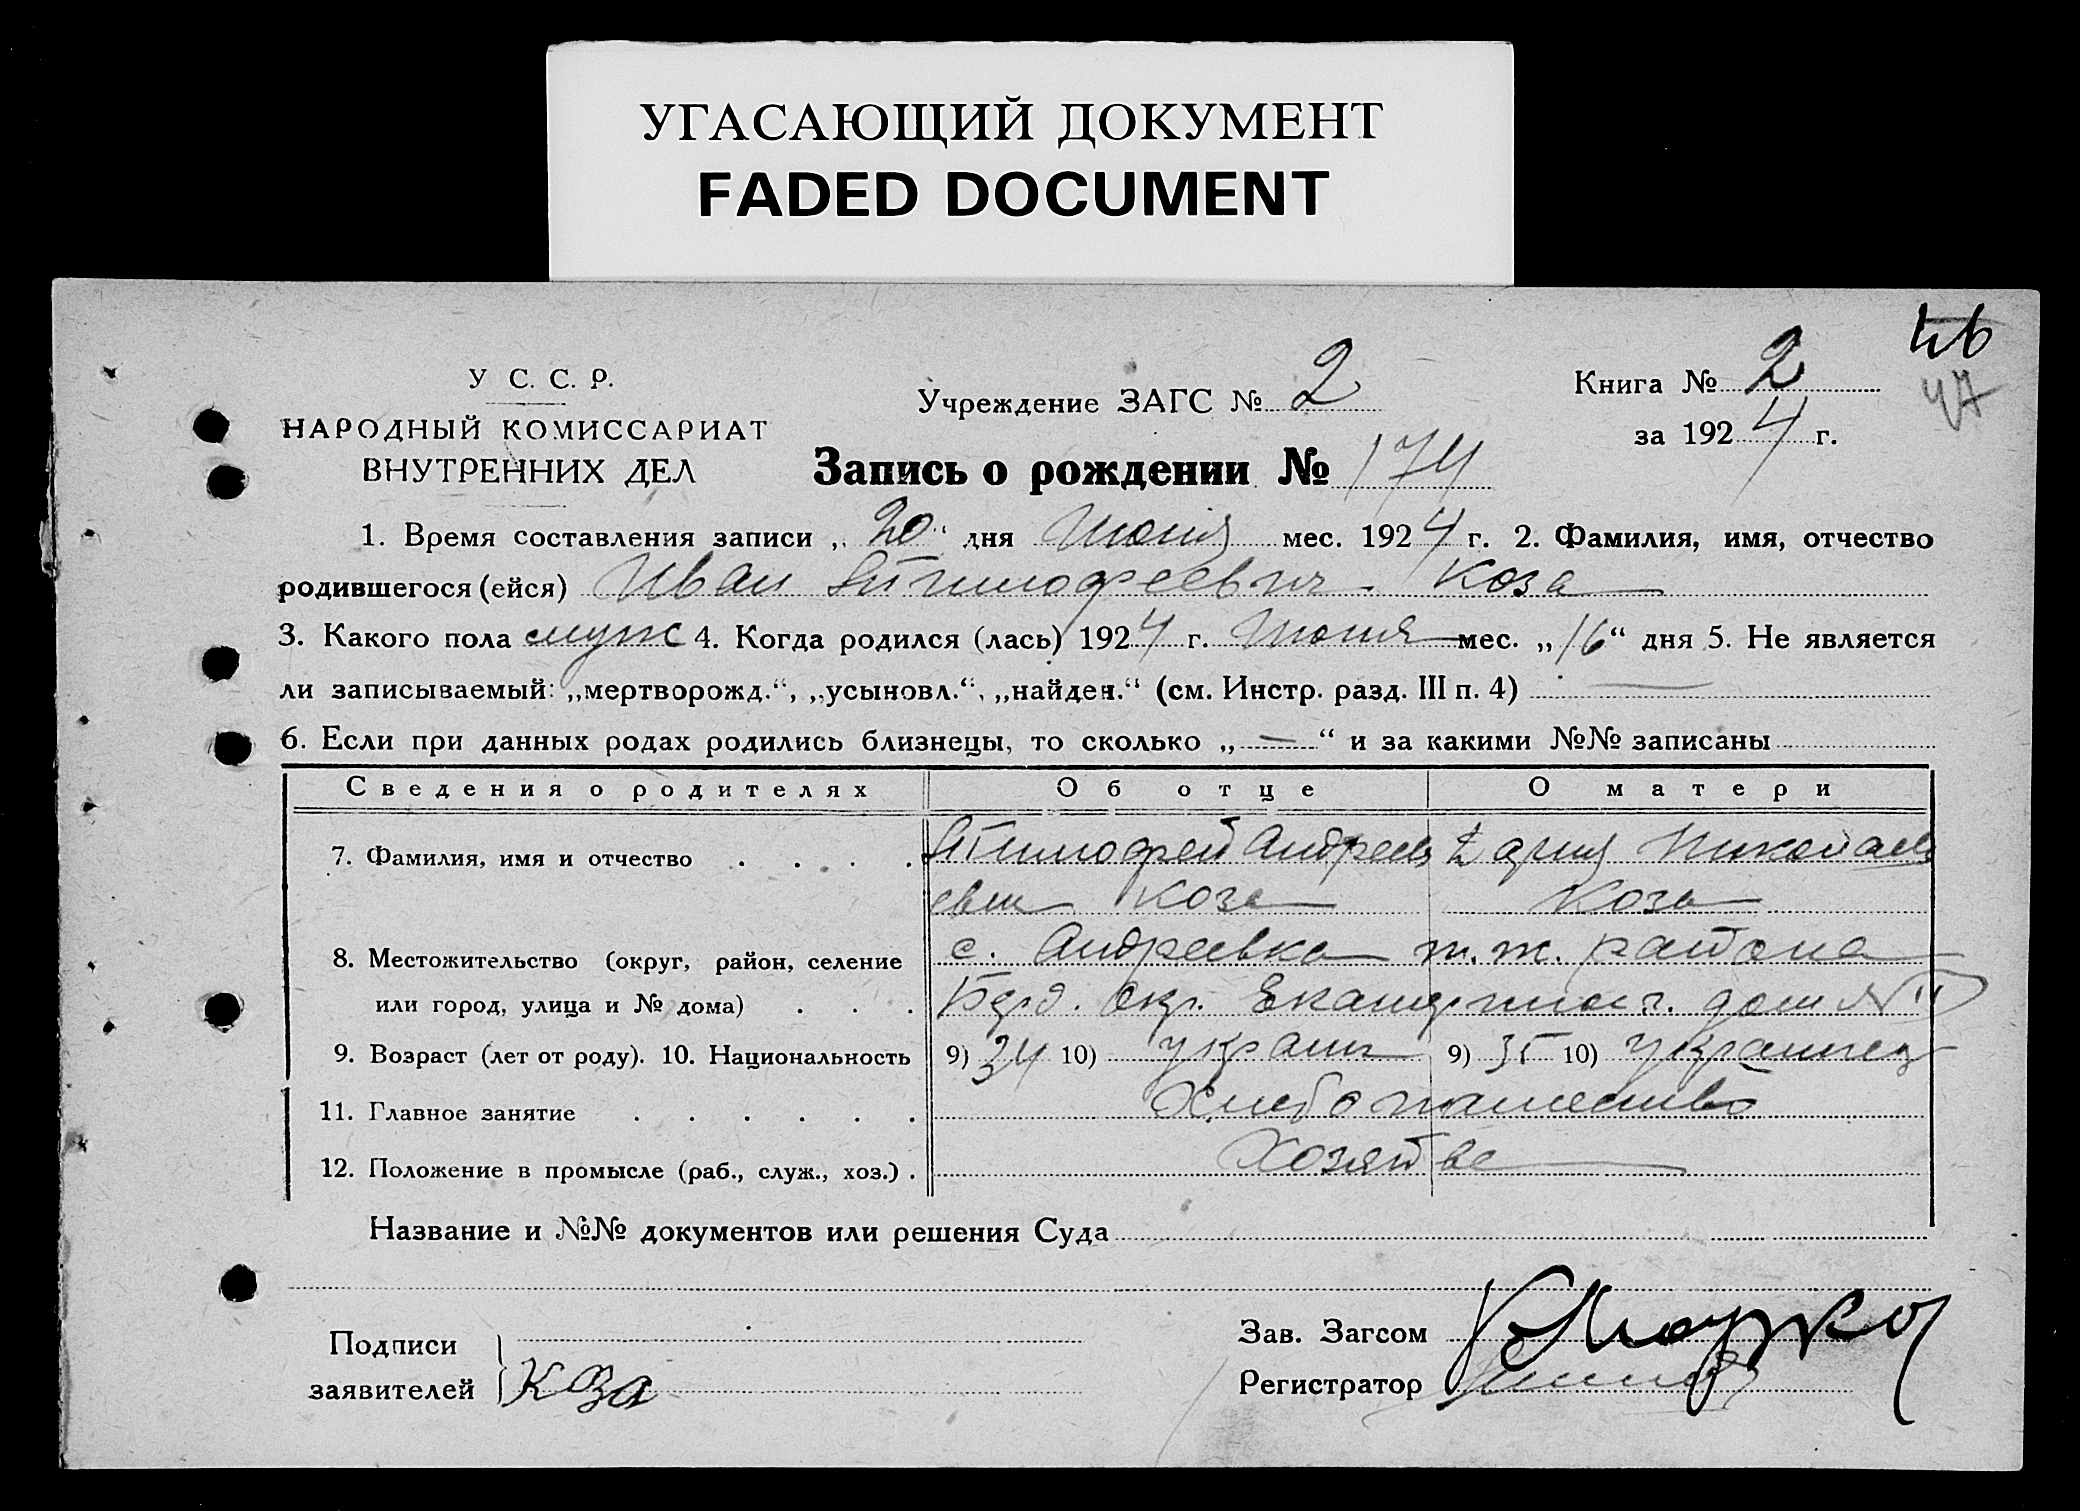 УГАСАЮЩИЙ ДОКУМЕНТ
FADED DOCUMENT
46
47
У С. С. Р.
НАРОДНЫЙ КОМИССАРИАТ
ВНУТРЕННИХ ДЕЛ
Учреждение ЗАГС № 2
Книга № 2
за 1924 г.
Запись о рождении № 174
1. Время составления записи „20“ дня Июня мес. 1924 г. 2. Фамилия, имя, отчество
родившегося (ейся) Иван Тимофеевич Коза
3. Какого пола муж 4. Когда родился (лась) 1924 г. Июня мес. „16“ дня 5. Не является
ли записываемый: „мертворожд.“, „усыновл.“, „найден.“ (см. Инстр. разд. III п. 4) —
6. Если при данных родах родились близнецы, то сколько „—“ и за какими №№ записаны
Сведения о родителях Об отце О матери
7. Фамилия, имя и отчество . . . . Тимофей Андреев Дария Николаев
евич Коза Коза
8. Местожительство (округ, район, селение с. Андреевка т.т. района
или город, улица и № дома) . . . Берд. окр. Екатер дом №
9. Возраст (лет от роду). 10. Национальность 9) 34 10) украин 9) 35 10) украинец
11. Главное занятие . . . . . . Хлебопашество
12. Положение в промысле (раб., служ., хоз.) . Хозяйве
Название и №№ документов или решения Суда
Подписи
заявителей Коза
Зав. Загсом
Регистратор